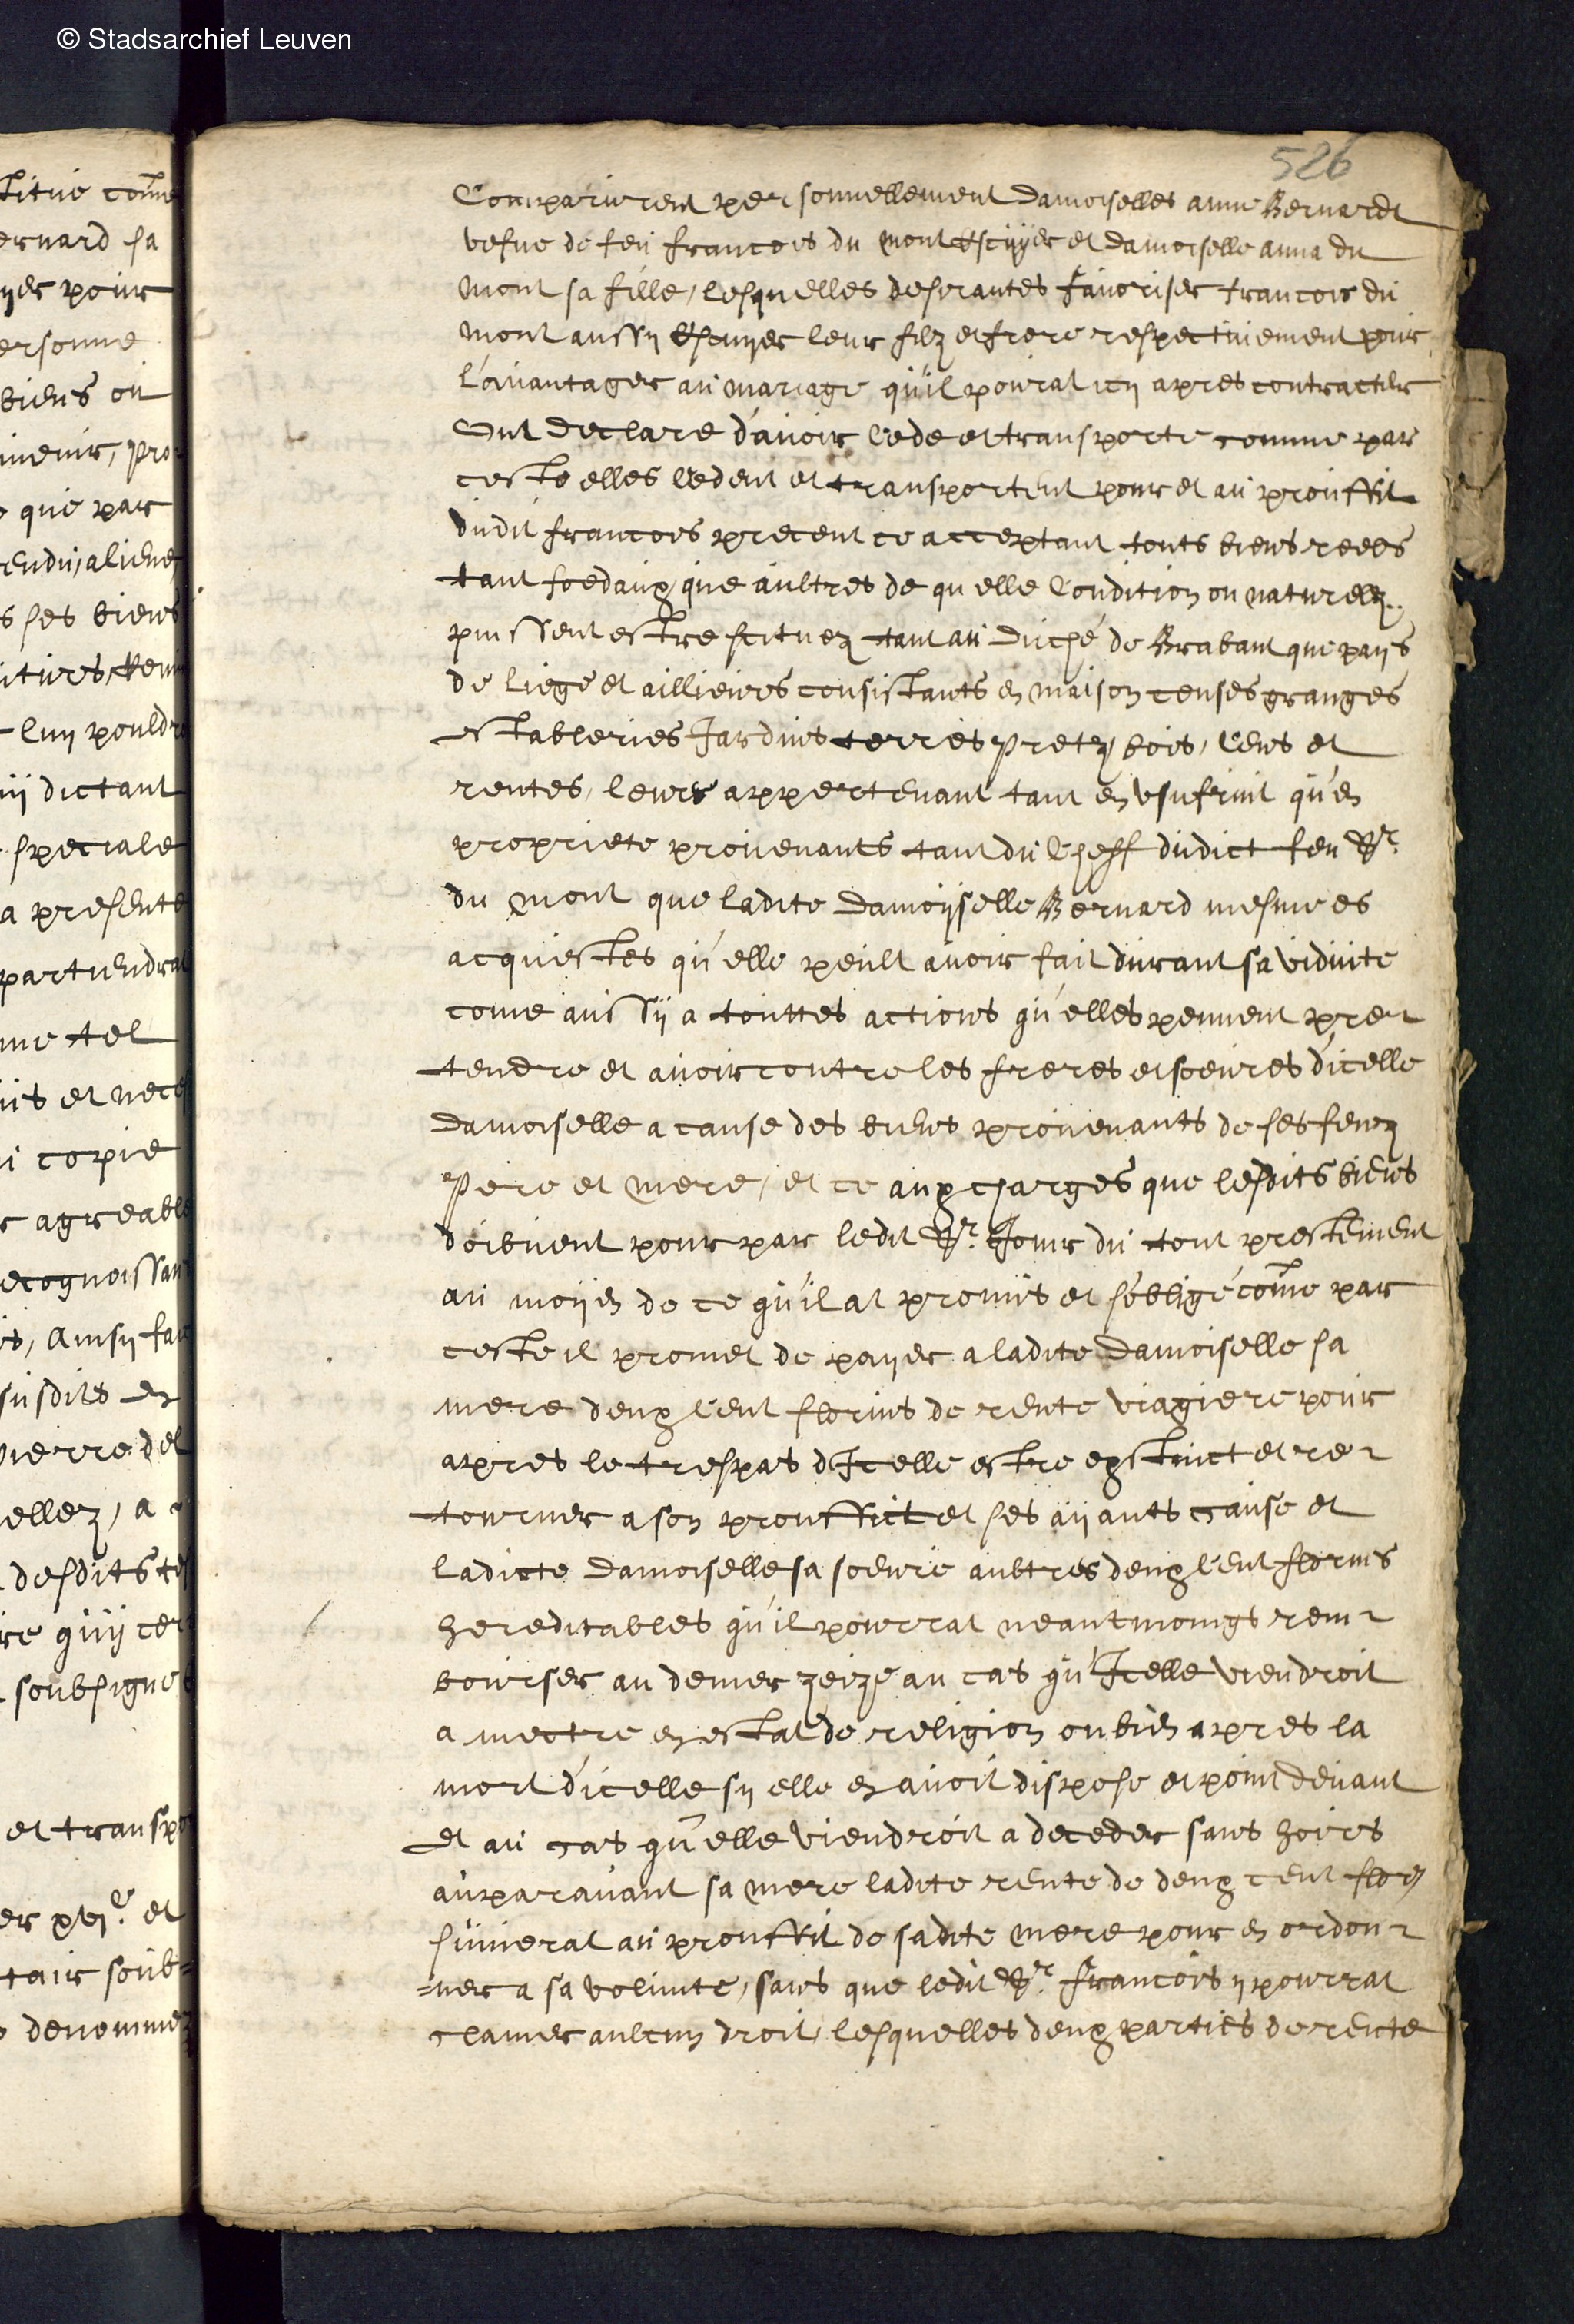 © Stadsarchief Leuven
526
Comparurent personnellement damoiselles anne Bernardt
vefue de feu francois du Mont Escuÿer et damoiselle anna du
Mont sa fille, lesquelles desirantes fauoriser francois du
Mont aussy Escuyer leur filz et frere respectiuement pour
l'auantager au mariage qu'il pourat icy apres contracter
Ont declare d'auoir Cede et transporte comme par
ceste elles Cedent et transportent pour et au prouffit
dudit francois present ce acceptant touts biens reels
tant foedaux que aultres de quelle Condition ou naturelz
puissent estre scituez tant au Duché de Brabant que pays
de Liege et aillieurs consistants en maison censes granges
estableries Jardins terres pretz, bois, Cens et
rentes, leurs appertenant tant en vsufruit qu'en
propriete prouenants tant du Cheff dudict feu Sr.
du Mont que ladite damoyselle Bernard mesmees
acquestes qu'elle peult auoir fait durant sa viduite
come aussÿ a touttes actions qu'elles peuuent pre-
tendre et auoir contre les freres et soeures d'icelle
damoiselle a cause des biens prouenants de ses feuz
Pere et Mere, et ce aux charges que lesdits biens
doibuent pour par ledit Sr. Jouir du tout prestement
au moÿen de ce qu'il at promis et s'obligé come par
ceste il promet de payer a ladite Damoiselle sa
mere deux Cent florins de rente viagiere pour
apres le trespas d'Icelle estre exstinct et re-
tourner a son prouffict et ses aÿants cause et
ladicte damoiselle sa soeure aultres deux Cent florins
hereditables qu'il pourrat neantmoings rem-
bourser au denier zeize au cas qu'Icelle viendroit
a mectre en estat de religion ou bien apres la
mort d'icelle sy elle en auoit dispose et point deuant
et au cas qu'elle viendroit a deceder sans hoirs
auparauant sa mere ladite rente de deux cent flor
suiuerat au prouffit de sadite Mere pour en ordon-
=ner a sa volunte, sans que ledit Sr. francois y pourrat
clamer aulcun droit, lesquelles deux parties de rente